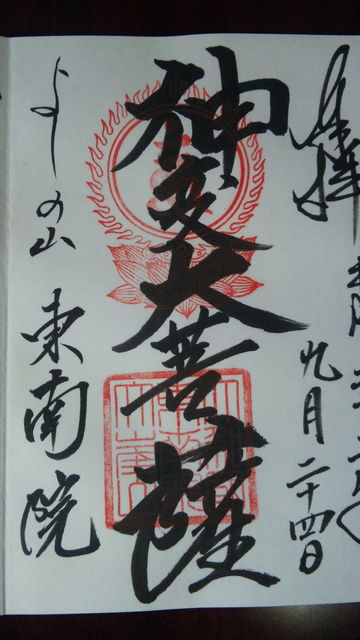 奉拝
九月二十四日
神変大菩薩
よしの山
東南院